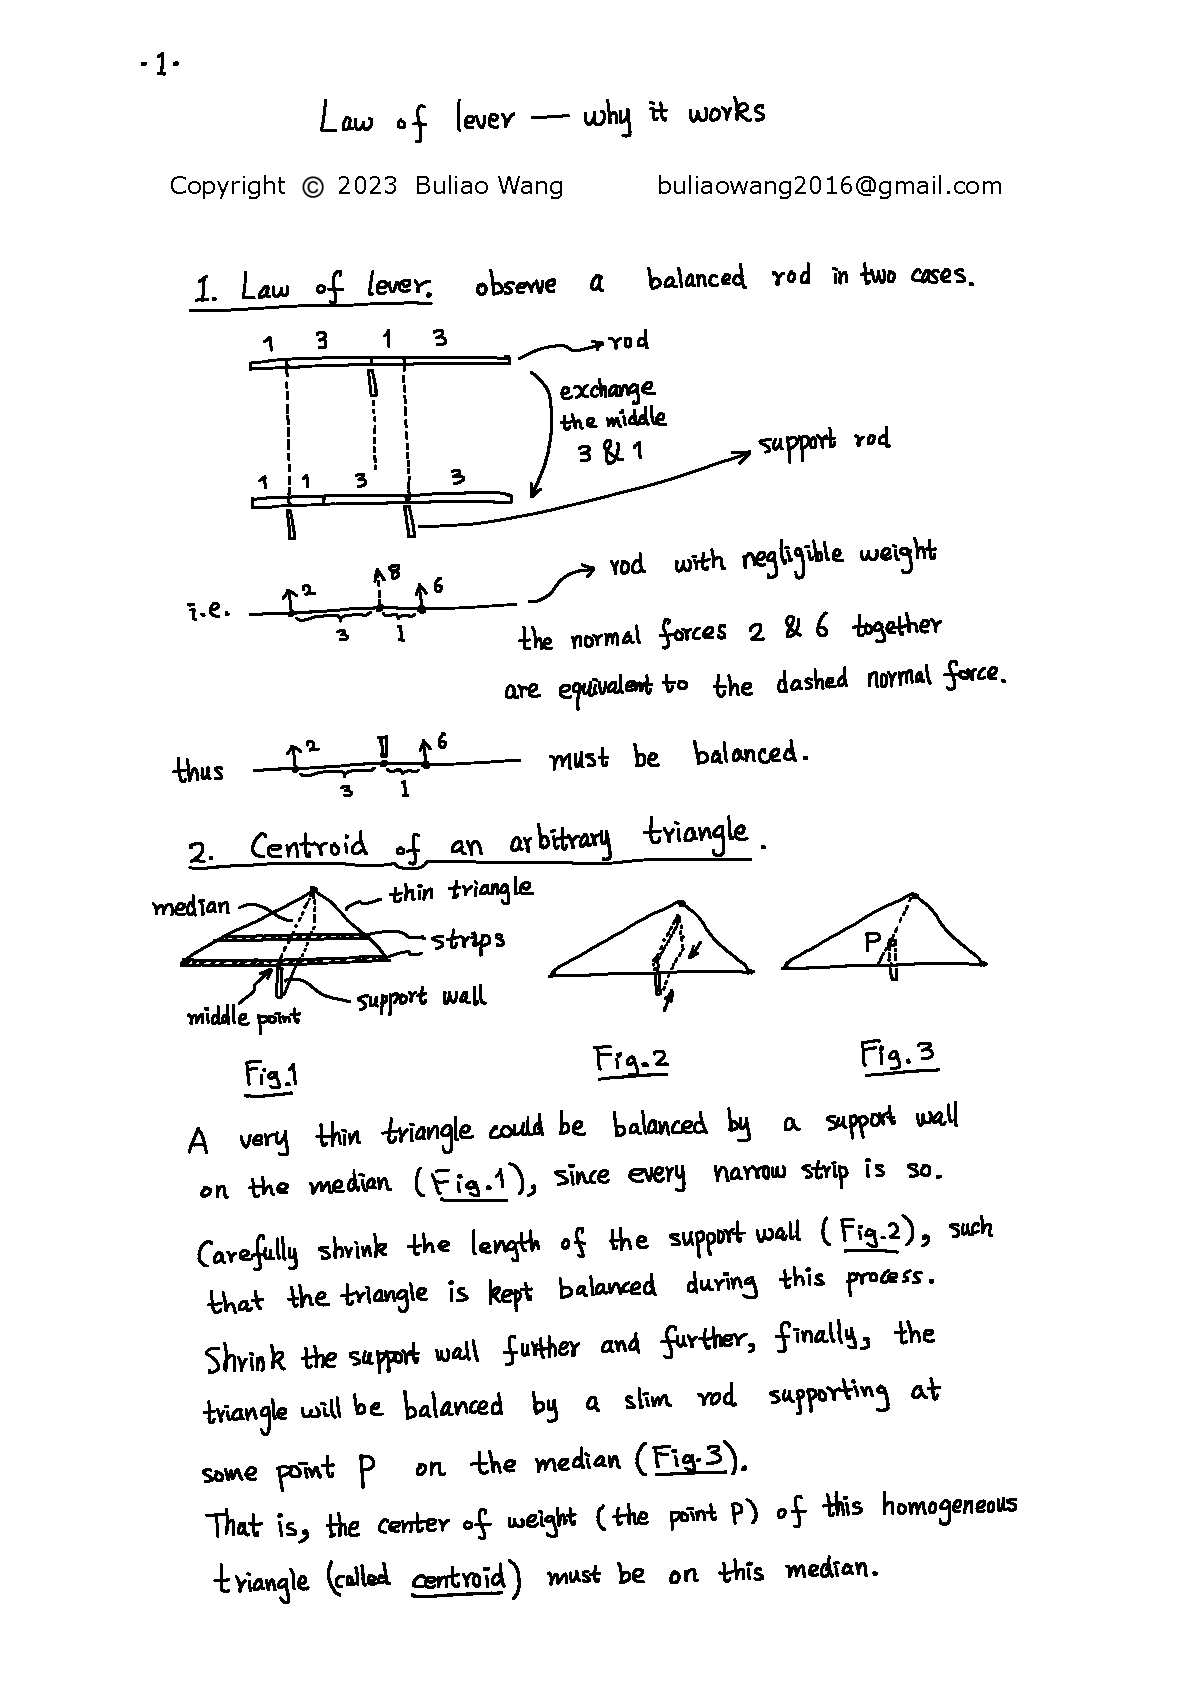 ·1·
Law of lever — why it works
Copyright © 2023 Buliao Wang buliaowang2016@gmail.com
1. Law of lever. observe a balanced rod in two cases.
1 3 1 3
rod
exchange
the middle
3 & 1
support rod
1 1 3 3
i.e. 2 8 6
3 1
rod with negligible weight
the normal forces 2 & 6 together
are equivalent to the dashed normal force.
thus 2 6 must be balanced.
3 1
2. Centroid of an arbitrary triangle.
median
thin triangle
strips
support wall
middle point
P
Fig.1 Fig.2 Fig.3
A very thin triangle could be balanced by a support wall
on the median (Fig.1), since every narrow strip is so.
Carefully shrink the length of the support wall (Fig.2), such
that the triangle is kept balanced during this process.
Shrink the support wall further and further, finally, the
triangle will be balanced by a slim rod supporting at
some point P on the median (Fig.3).
That is, the center of weight (the point P) of this homogeneous
triangle (called centroid) must be on this median.